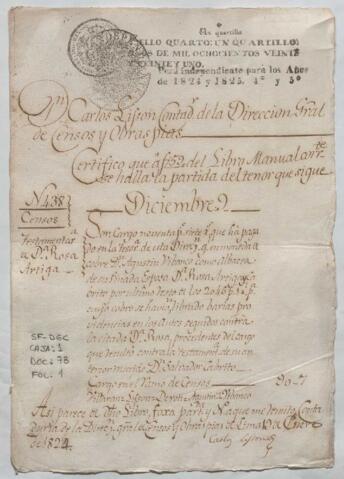 Un quartillo
SELLO QUARTO: UN QUARTILLO
AÑOS DE MIL OCHOCIENTOS VEINTE
Y VEINTE Y UNO.
Perú independiente para los Años
de 1824 y 1825. 4º y 5º
Dn Carlos Lison Contadr de la Direccion Gral
de Censos y Obras Pias
Certifico que a f del Libro Manual corrte
se halla la partida del tenor que sigue
Diciembre 9
N 438
Censos
Testamentaria
de Da Rosa
Artiga
Son Cargo noventa ps siete rs que ha paga
do en la Tesora de esta Direcn
cobre Dn Agustin Vibanco como Albacea
de su finada Esposa Da Rosa Artiga
por ultimo resto de los 2048 ps
cuyo cobro se havian librado barias pro
videncias en los autos seguidos contra
la citada Da Rosa, procedentes del cargo
que resultó contra la testamenta de su an
terior marido Dn Salvador Cabrito
Cargo en el Ramo de Censos 90.7
Villaran Lison Agustin Vibanco
Asi parece de dho Libro, foxa, parta y No a que me remito Conta
duria de la Direcn gral de Censos y Obras pias de Lima de Enero
de 1824
Carlos Lison
SF-DGC
CAJA: 1
DOC: 78
FOL: 1